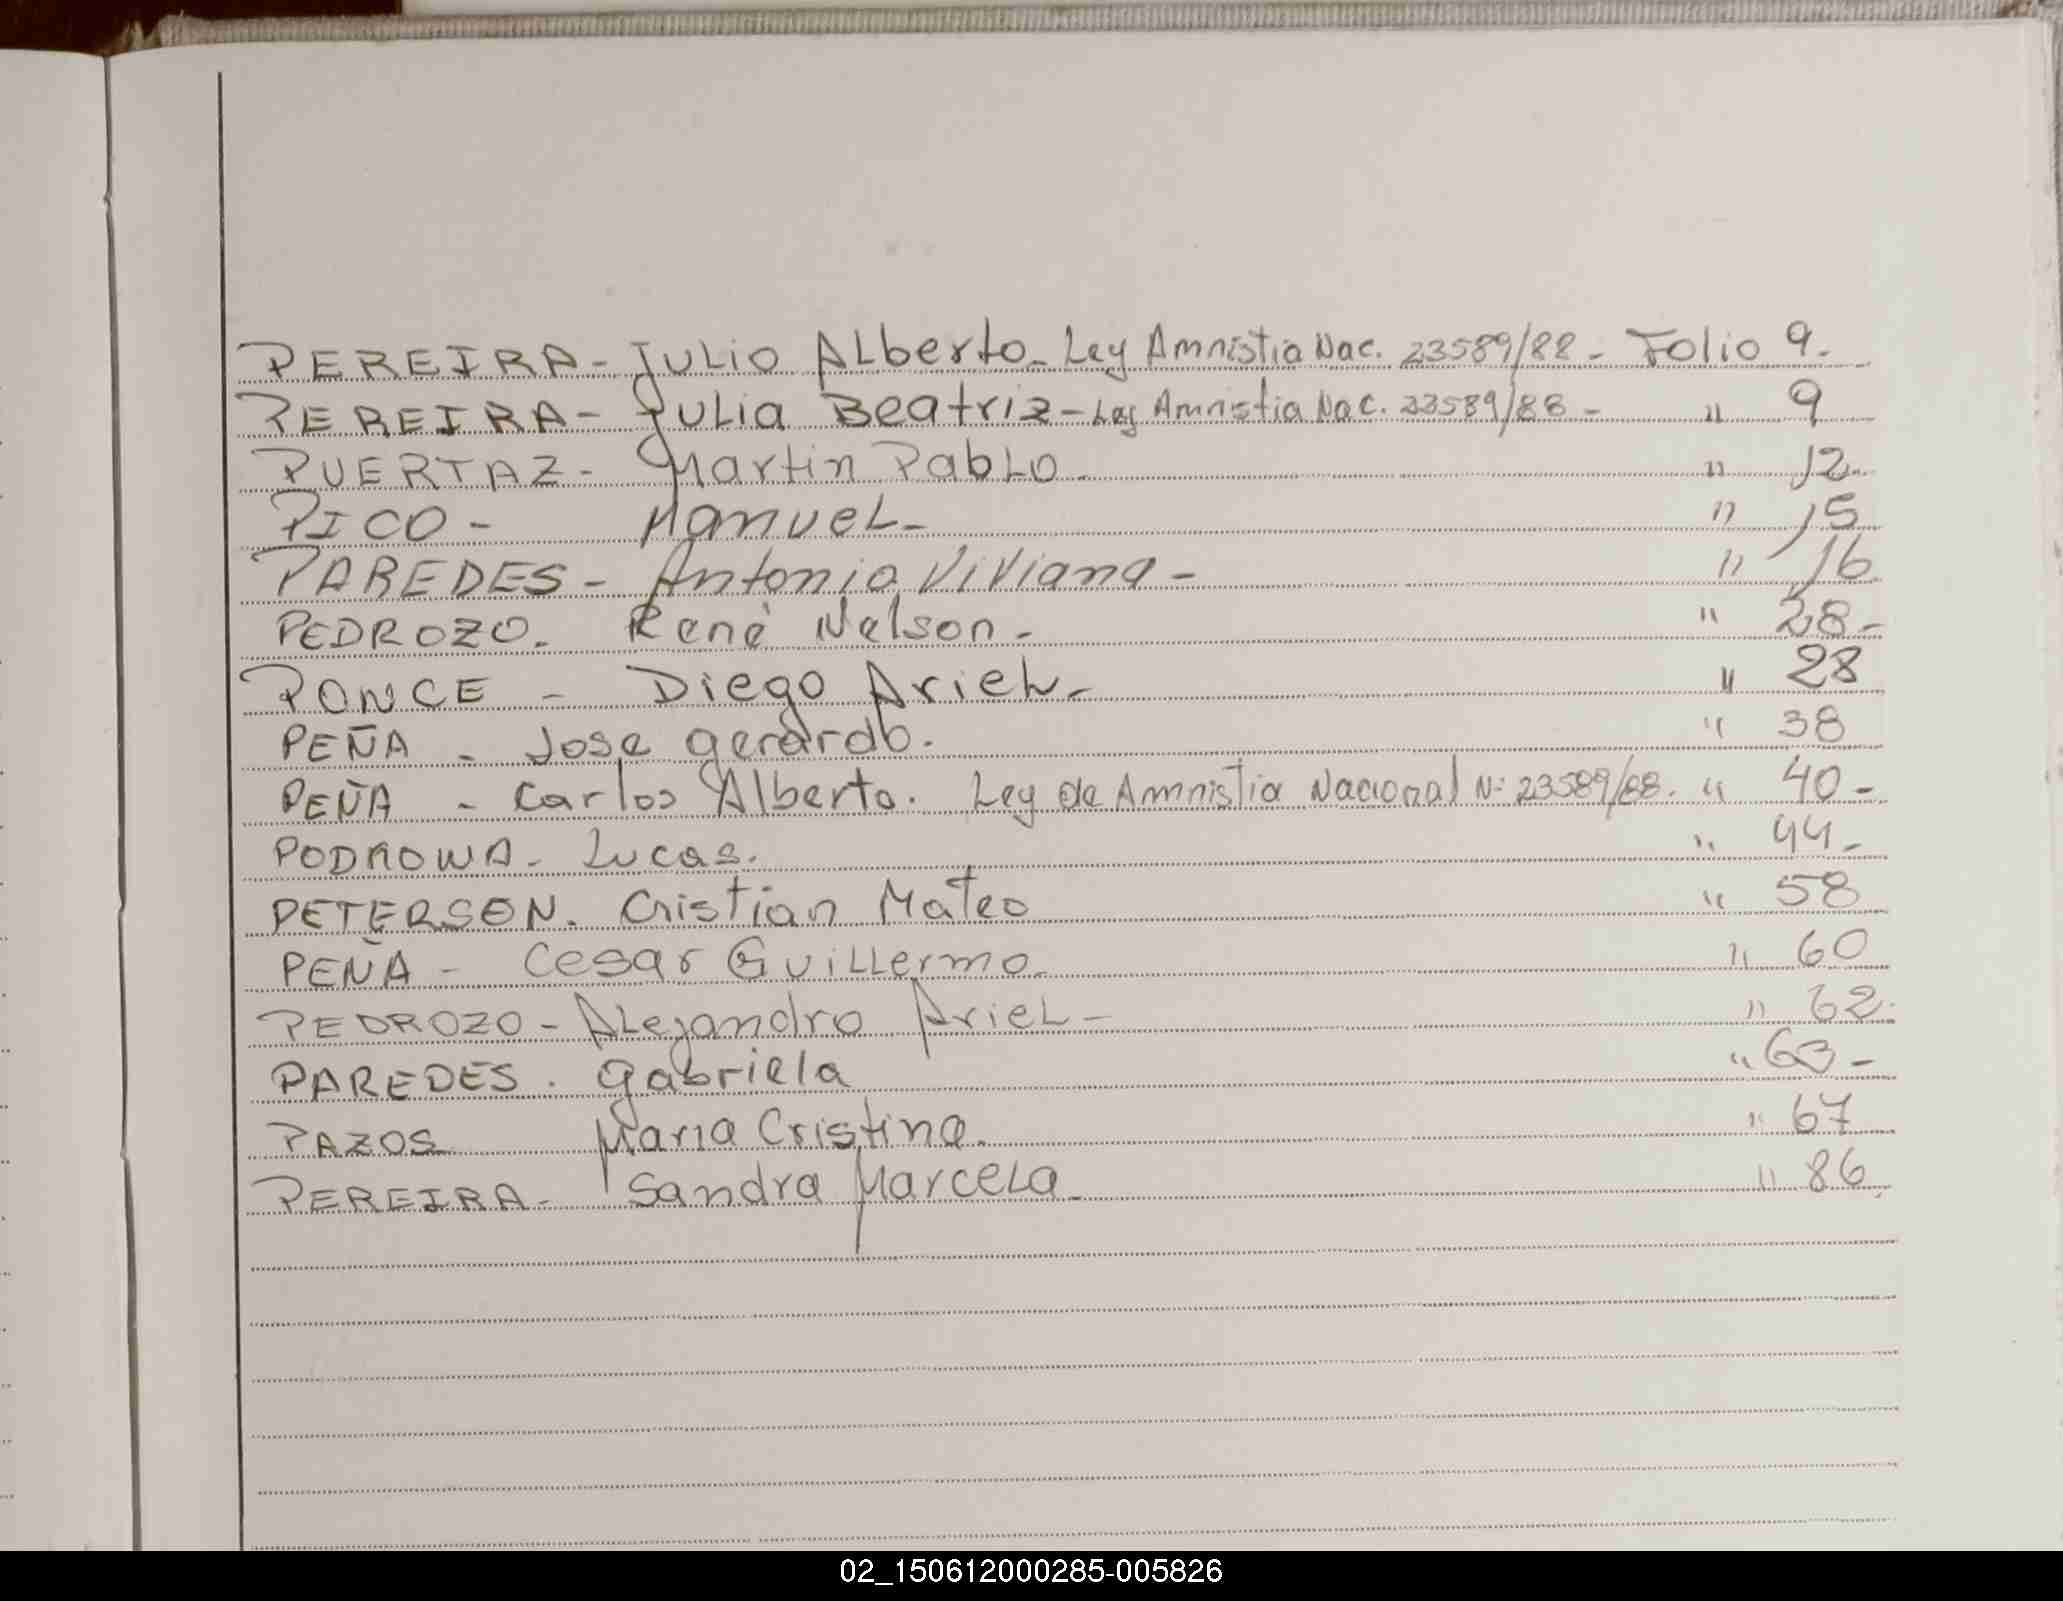 PEREIRA - Julio Alberto - Ley Amnistia Nac. 23589/88 - Folio 9.
PEREIRA - Julia Beatriz - Ley Amnistia Nac. 23589/88 - " 9
PUERTAZ - Martin Pablo - " 12.
PICO - Manuel - " 15
PAREDES - Antonia Viviana - " 16
PEDROZO. Renè Nelson - " 28 -
PONCE - Diego Ariel - " 28
PEÑA - Jose Gerardo. " 38
PEÑA - Carlos Alberto. Ley de Amnistia Nacional Nº 23589/88. " 40 -
PODROWA - Lucas. " 44 -
PETERSON. Cristian Mateo " 58
PEÑA - Cesar Guillermo. " 60
PEDROZO - Alejandro Ariel - " 62.
PAREDES. Gabriela " 63 -
PAZOS Maria Cristina. " 67
PEREIRA - Sandra Marcela - " 86.
02_150612000285-005826